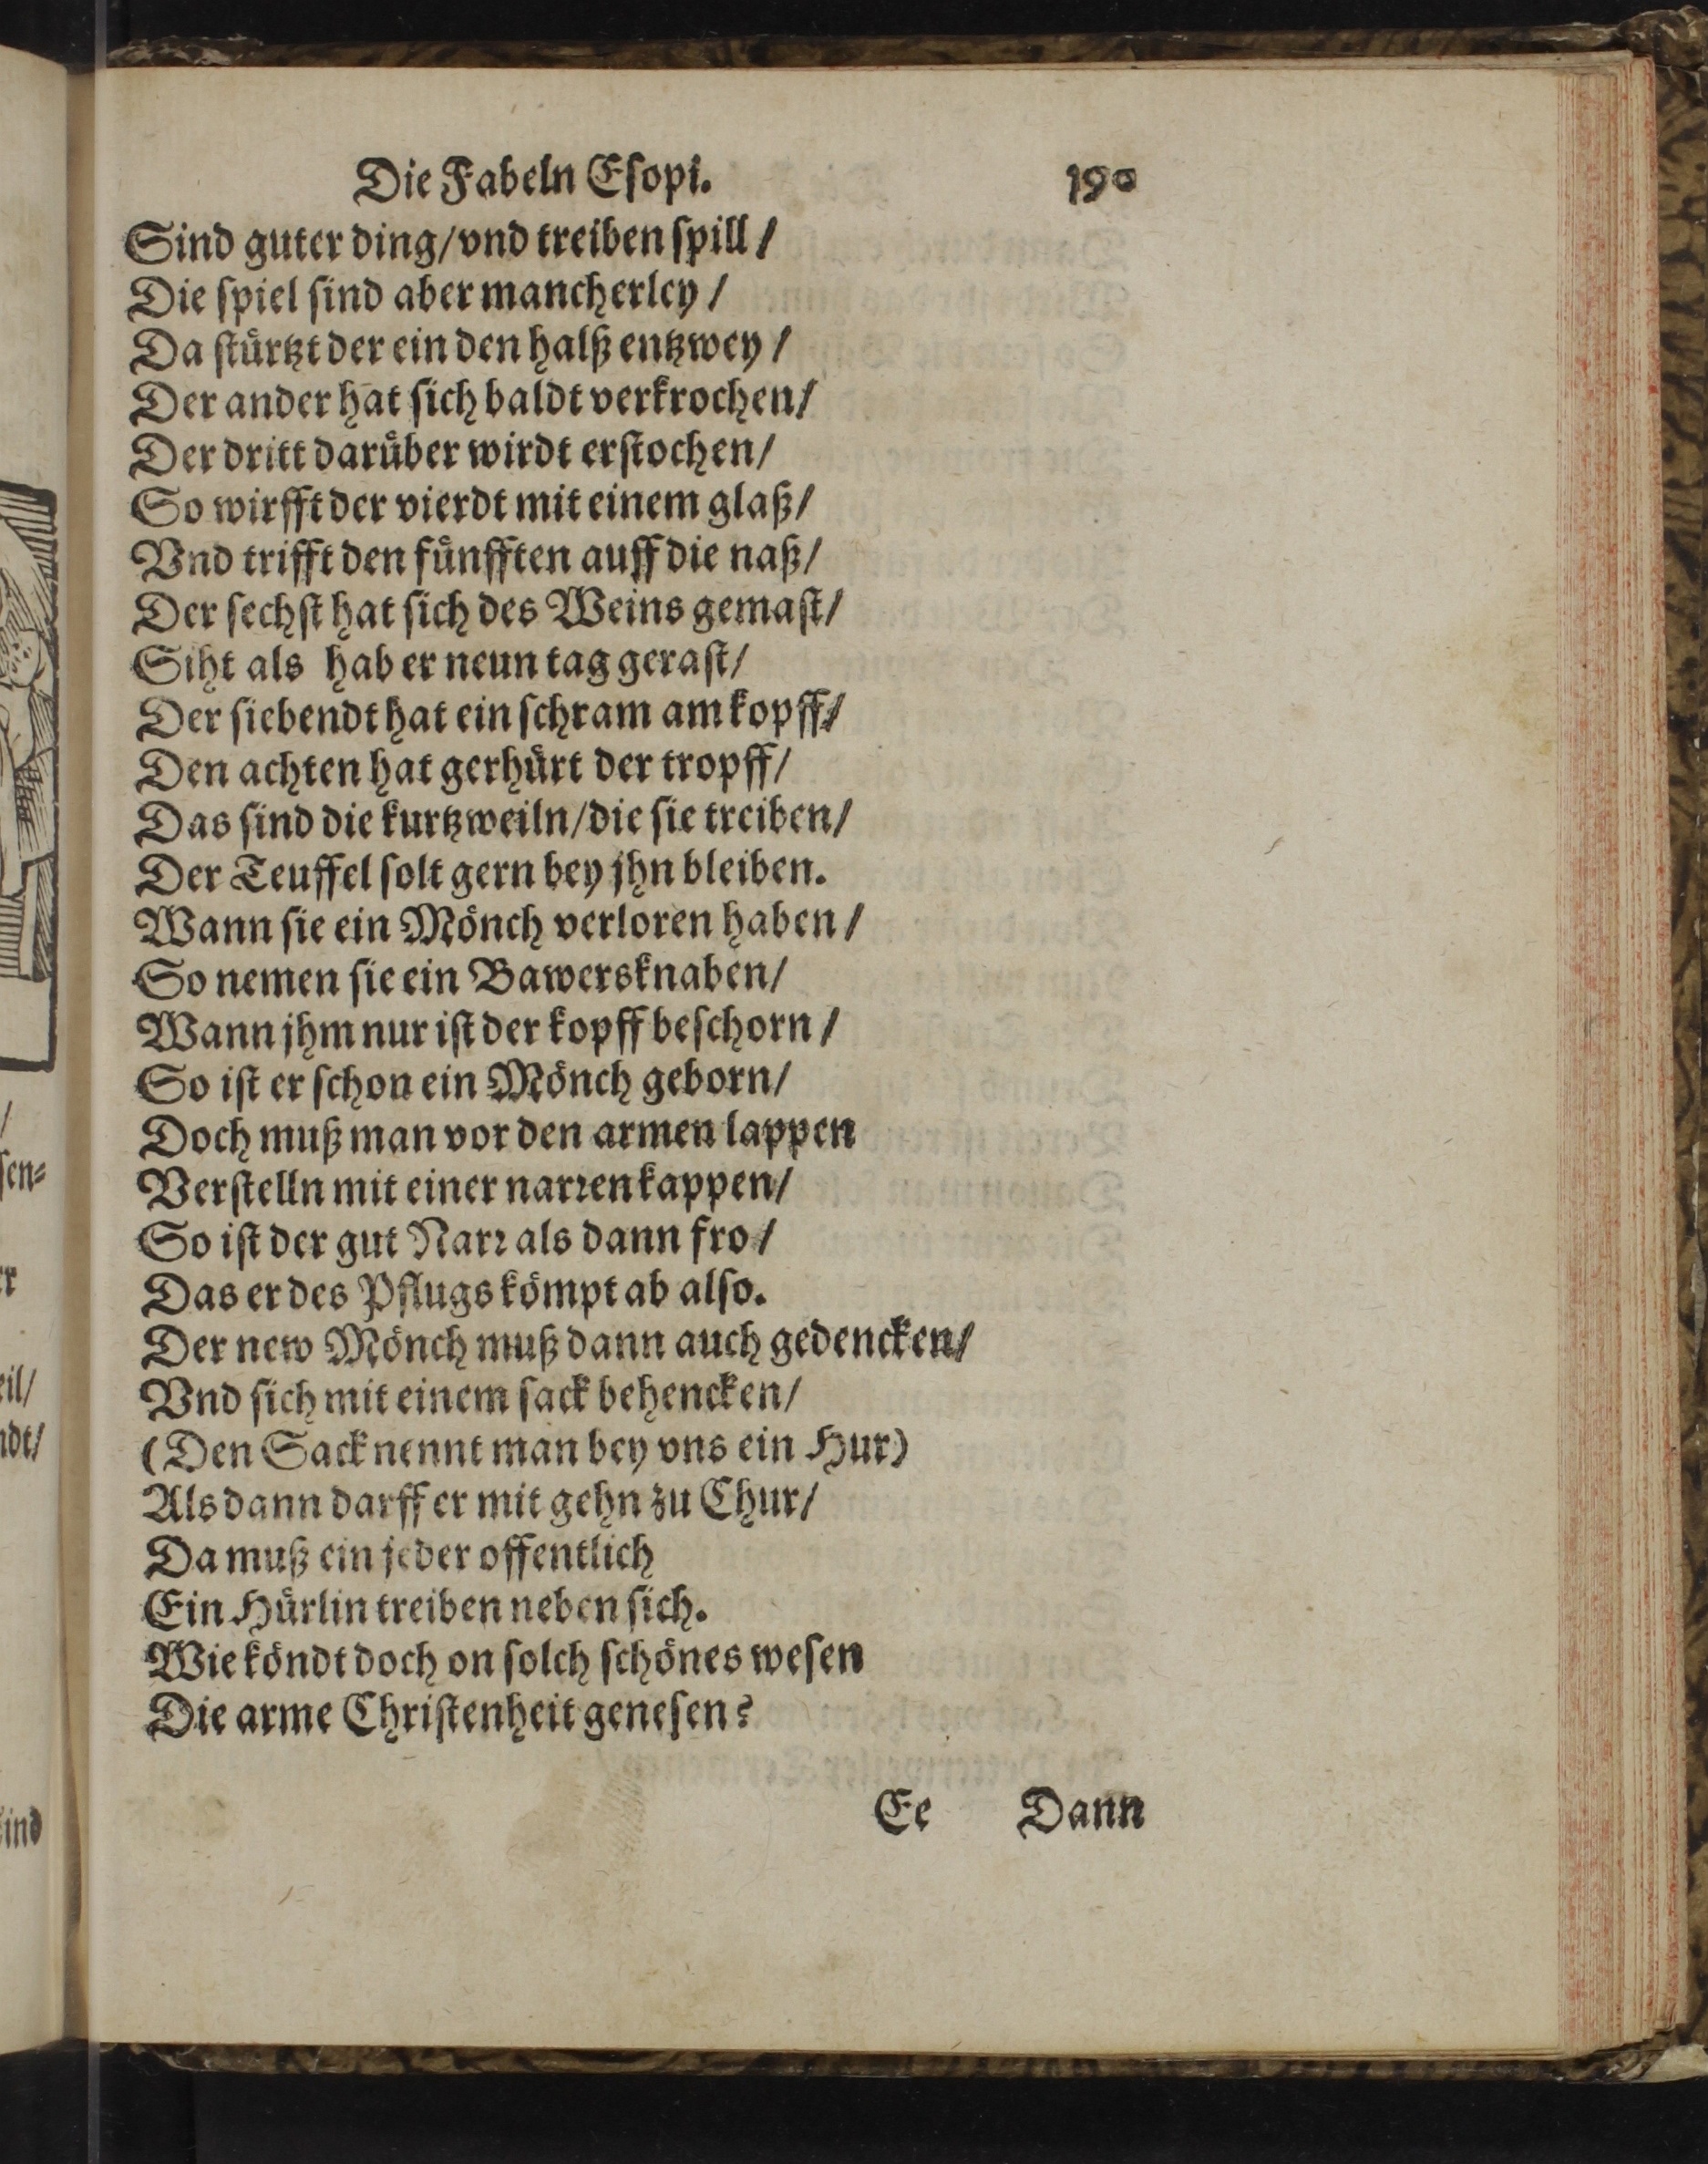 Die Fabeln Eſopi. 190
Sind guter ding/vnd treiben ſpill/
Die ſpiel ſind aber mancherley/
Da ſtürtzt der ein den halß entzwey/
Der ander hat ſich baldt verkrochen/
Der dritt darüber wirdt erſtochen/
So wirfft der vierdt mit einem glaß/
Vnd trifft den fünfften auff die naß/
Der ſechſt hat ſich des Weins gemaſt/
Siht als hab er neun tag geraſt/
Der ſiebendt hat ein ſchram am kopff/
Den achten hat gerhürt der tropff/
Das ſind die kurtzweiln/die ſie treiben/
Der Teuffel ſolt gern bey jhn bleiben.
Wann ſie ein Mönch verloren haben/
So nemen ſie ein Bawersknaben/
Wann jhm nur iſt der kopff beſchorn/
So iſt er ſchon ein Mönch geborn/
Doch muß man vor den armen lappen
Verſtelln mit einer narrenkappen/
So iſt der gut Narr als dann fro/
Das er des Pflugs kömpt ab alſo.
Der new Mönch muß dann auch gedencken/
Vnd ſich mit einem ſack behencken/
(Den Sack nennt man bey vns ein Hur)
Als dann darff er mit gehn zu Chur/
Da muß ein jeder offentlich
Ein Hürlin treiben neben ſich.
Wie köndt doch on ſolch ſchönes weſen
Die arme Chriſtenheit geneſen?
Ee Dann